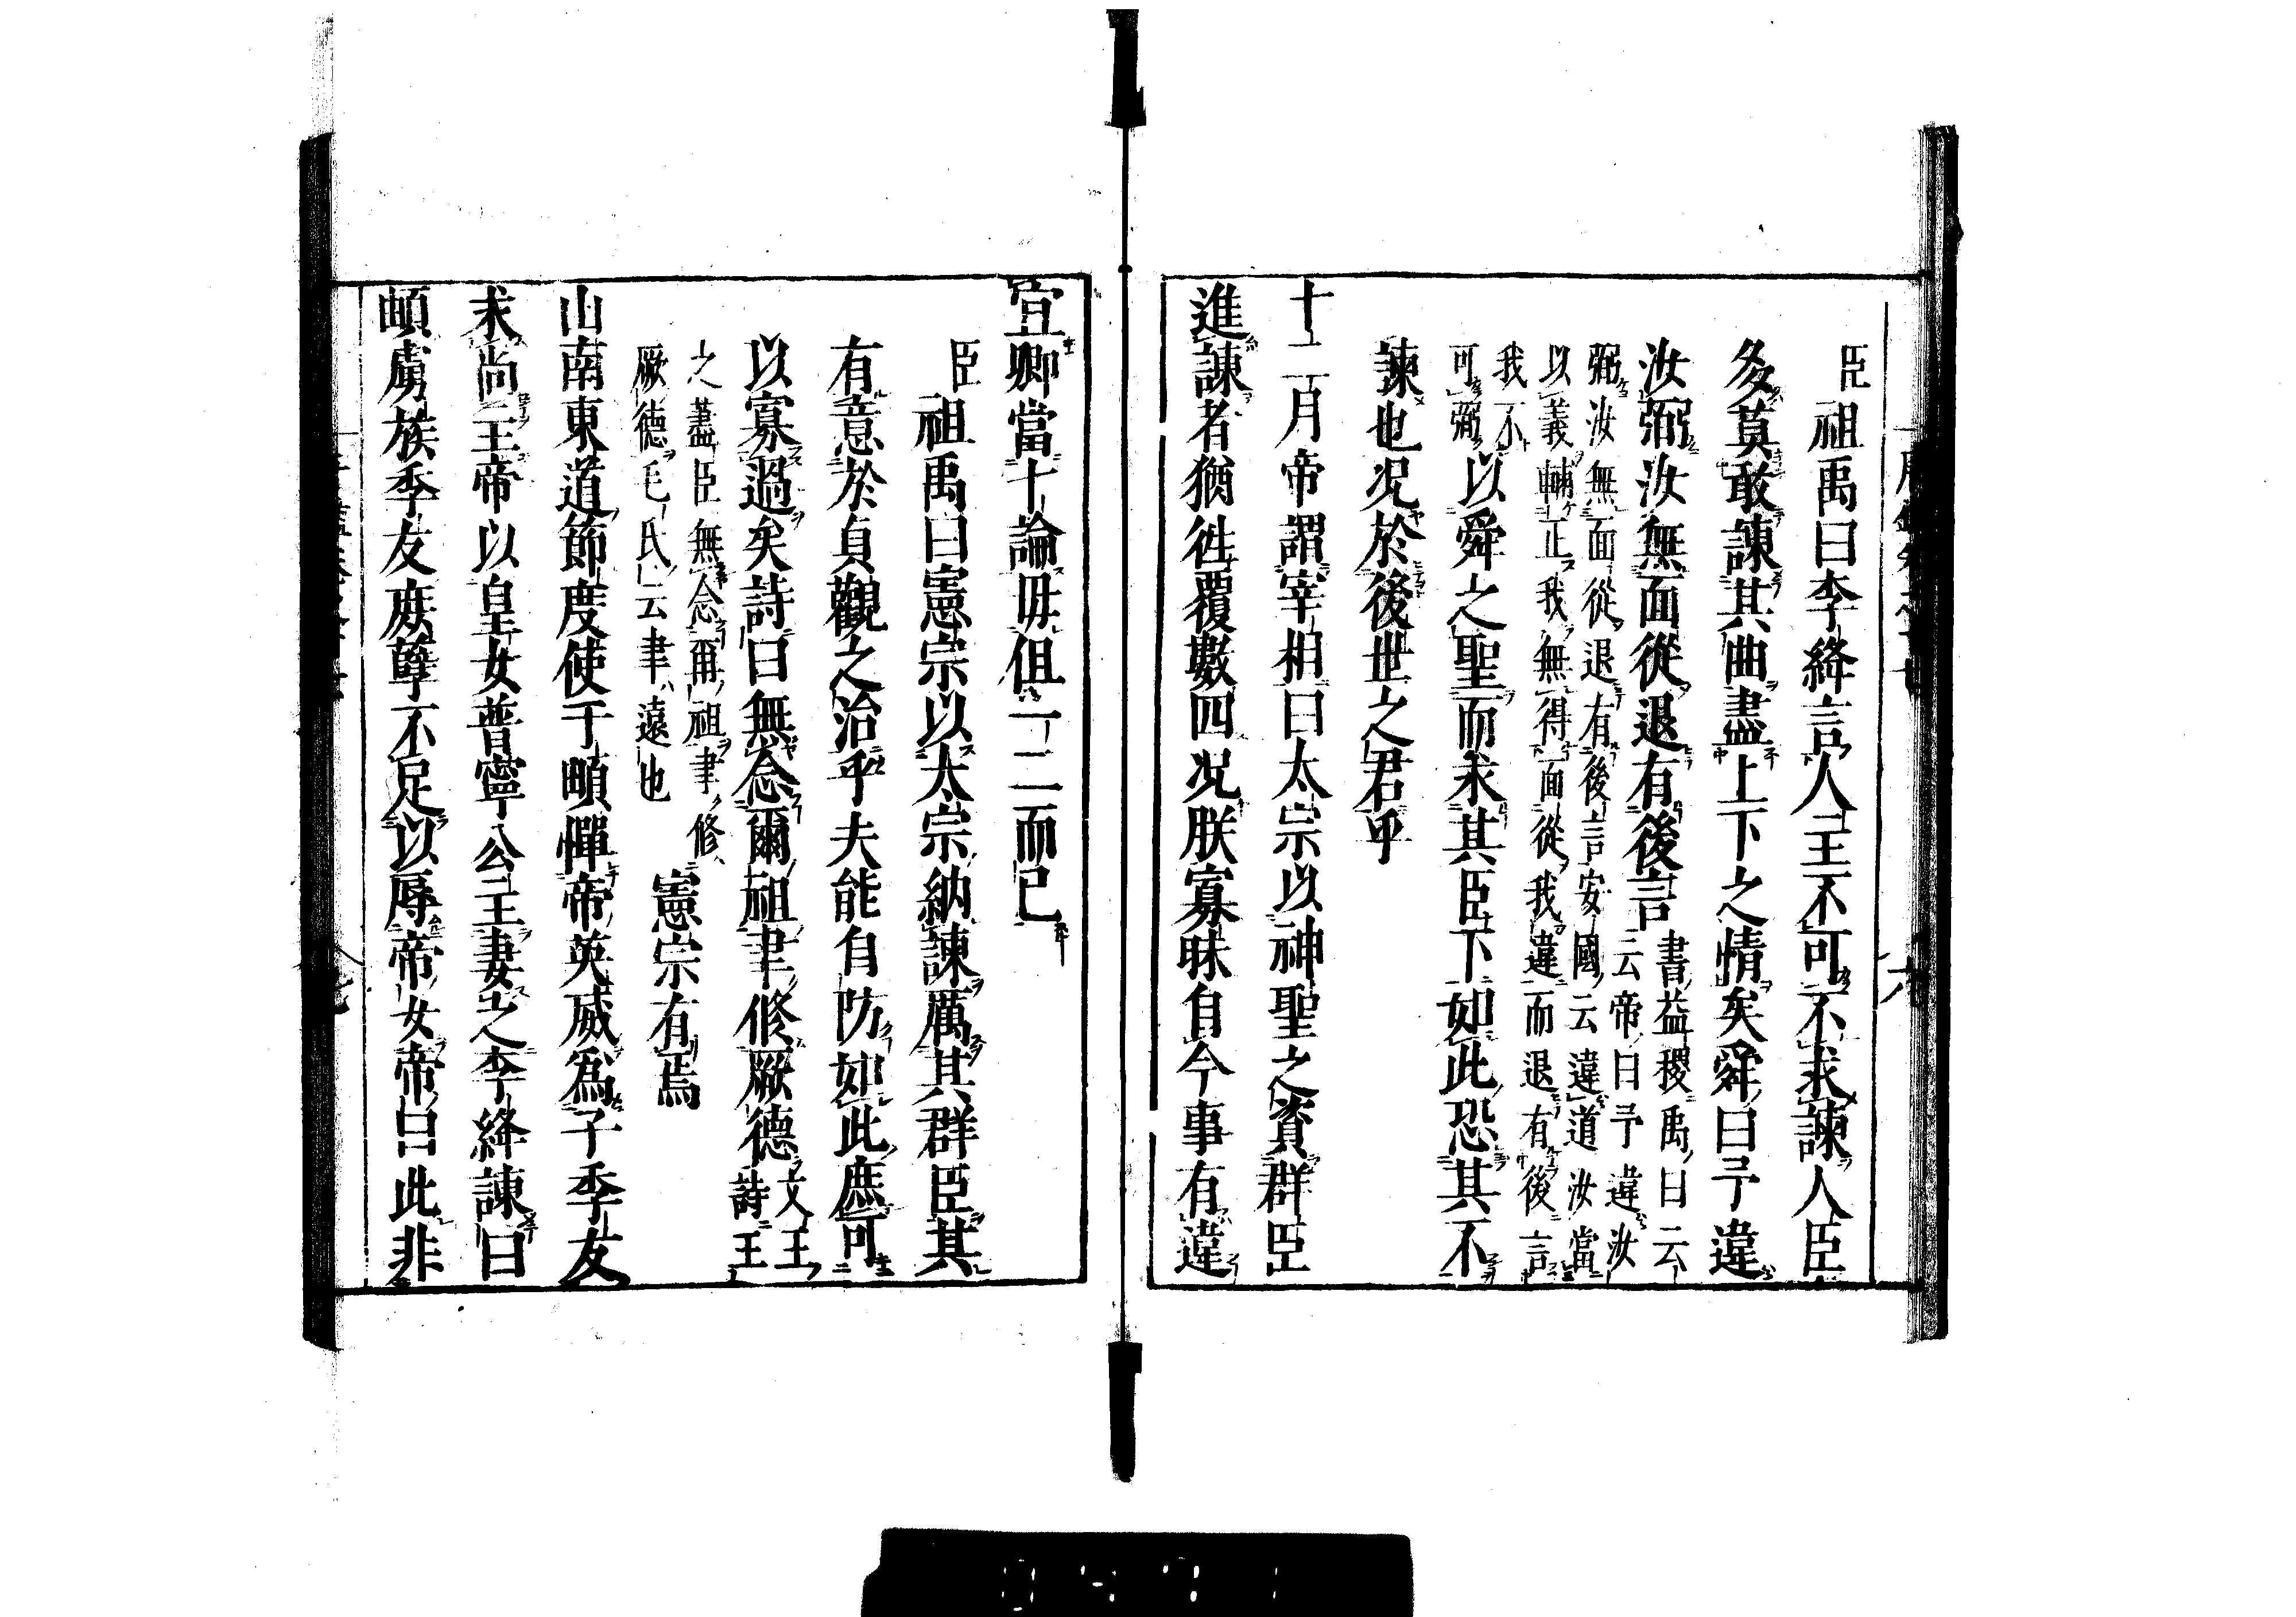 臣祖禹曰李絳言人主不可不求諫人臣
多莫敢諫其曲盡上下之情矣舜曰予違
汝弼汝無面從退有後言
書益稷禹曰云
云帝曰予違汝
弼汝無面從退有後言安國云違道汝當
以義輔正我無得面從我違而退有後言
我不
可弼
以舜之聖而求其臣下如此恐其不
諫也况於後世之君乎
十二月帝謂宰相曰太宗以神聖之資群臣
進諫者猶徃覆數四况朕寡昧自今事有違
宜卿當十論毋但一二而已
臣祖禹曰憲宗以太宗納諫厲其群臣其
有意於貞觀之治乎夫能自防如此庶可
以寡過矣詩曰無念爾祖聿修厥德
文王
詩王
之藎臣無念爾祖聿修
厥德毛氏云聿遠也
憲宗有焉
山南東道節度使于頔憚帝英威爲子季友
求尚主帝以皇女普寧公主妻之李絳諫曰
頔虜族季友庶孽不足以辱帝女帝曰此非